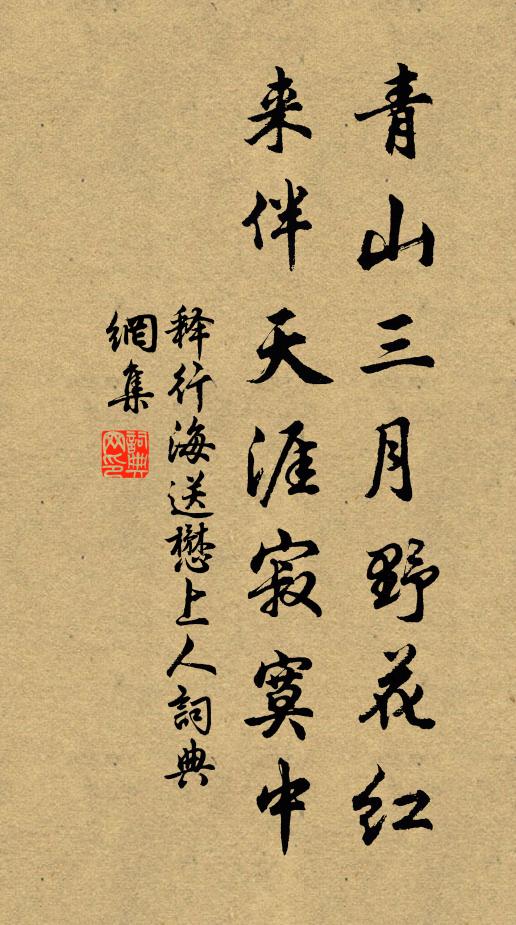 青山三月野花红
来伴天涯寂寞中
释行海送懋上人詞典
網集
詞典網印